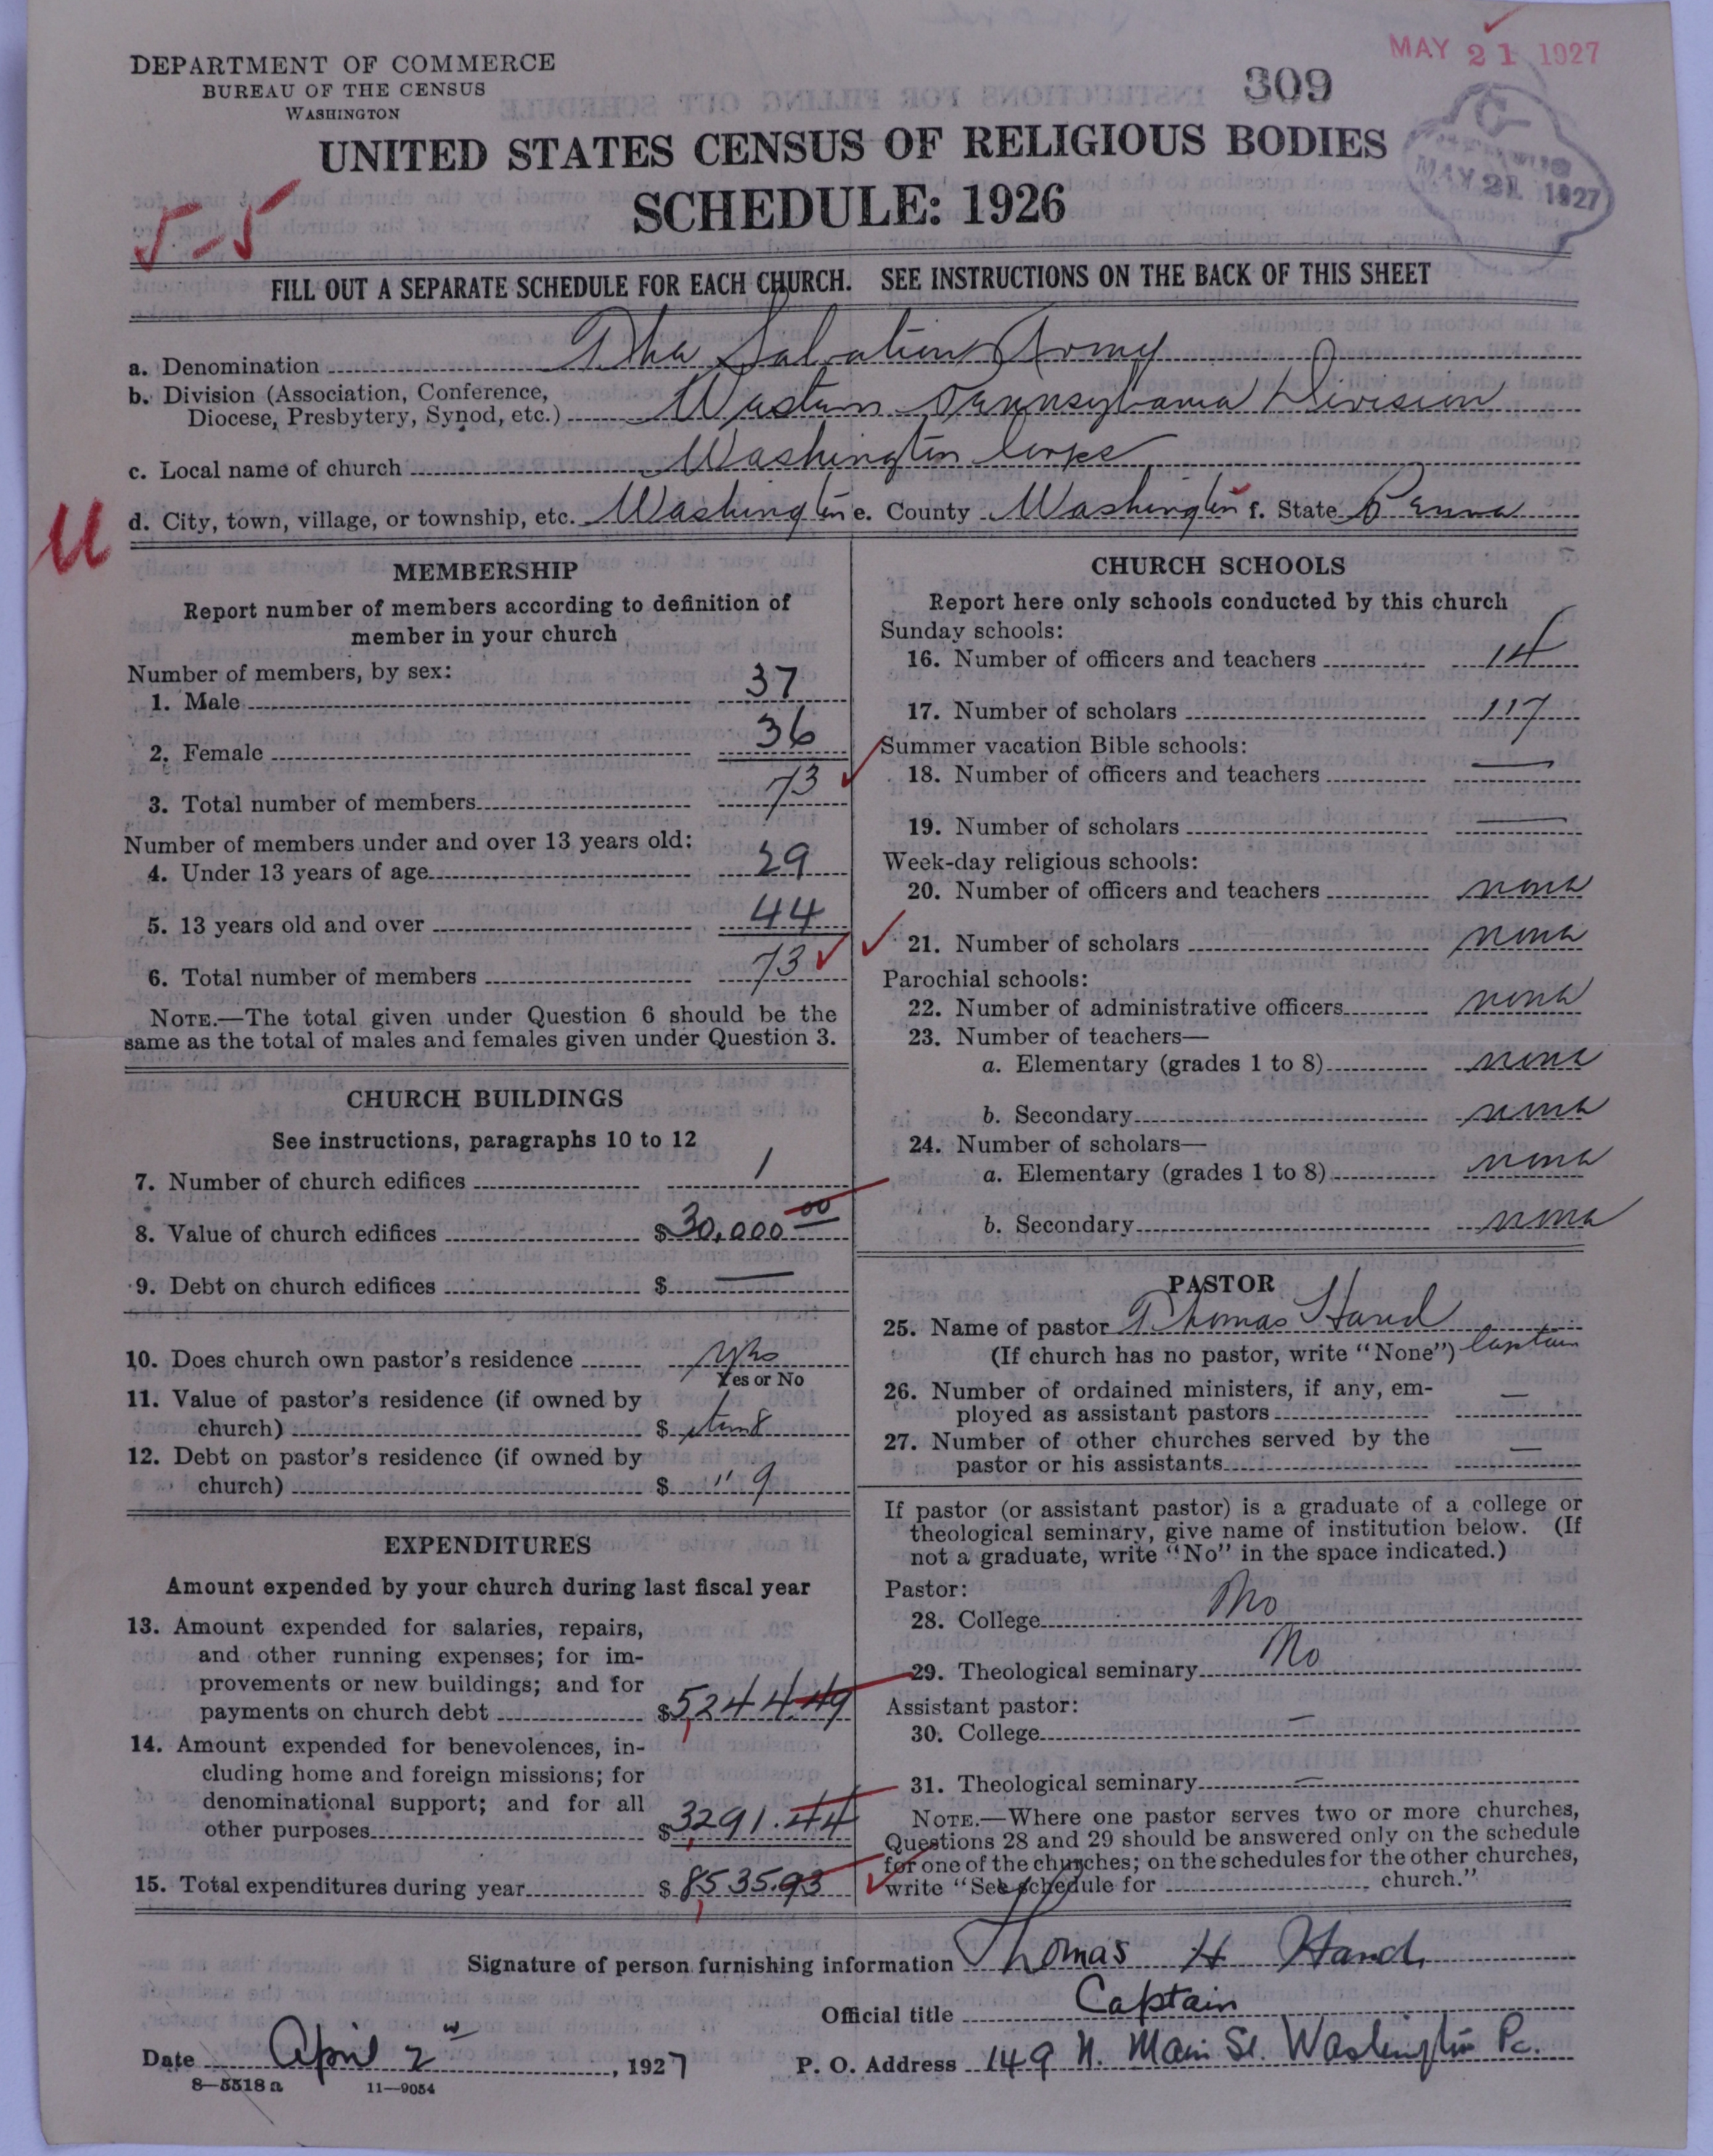 MAY 21 1927
DEPARTMENT OF COMMERCE
BUREAU OF THE CENSUS
WASHINGTON
309
MAY 21 1927
UNITED STATES CENSUS OF RELIGIOUS BODIES
SCHEDULE: 1926
5-5
FILL OUT A SEPARATE SCHEDULE FOR EACH CHURCH. SEE INSTRUCTIONS ON THE BACK OF THIS SHEET
a. Denomination The Salvation Army
b. Division (Association, Conference,
Diocese, Presbytery, Synod, etc.) Western Pennsylvania Division
c. Local name of church Washington Corps
U
d. City, town, village, or township, etc. Washington e. County Washington f. State Penna
MEMBERSHIP
Report number of members according to definition of
member in your church
Number of members, by sex:
1. Male 37
2. Female 36
3. Total number of members 73
Number of members under and over 13 years old:
4. Under 13 years of age 29
5. 13 years old and over 44
6. Total number of members 73
NOTE.—The total given under Question 6 should be the
same as the total of males and females given under Question 3.
CHURCH BUILDINGS
See instructions, paragraphs 10 to 12
7. Number of church edifices 1
8. Value of church edifices $30,000.00
9. Debt on church edifices $ —
10. Does church own pastor's residence Yes
Yes or No
11. Value of pastor's residence (if owned by
church) $ 8
12. Debt on pastor's residence (if owned by
church) $ " 9
EXPENDITURES
Amount expended by your church during last fiscal year
13. Amount expended for salaries, repairs,
and other running expenses; for im-
provements or new buildings; and for
payments on church debt $5,244.49
14. Amount expended for benevolences, in-
cluding home and foreign missions; for
denominational support; and for all
other purposes $3,291.44
15. Total expenditures during year $8,535.93
CHURCH SCHOOLS
Report here only schools conducted by this church
Sunday schools:
16. Number of officers and teachers 14
17. Number of scholars 117
Summer vacation Bible schools:
18. Number of officers and teachers —
19. Number of scholars —
Week-day religious schools:
20. Number of officers and teachers none
21. Number of scholars none
Parochial schools:
22. Number of administrative officers none
23. Number of teachers—
a. Elementary (grades 1 to 8) none
b. Secondary none
24. Number of scholars—
a. Elementary (grades 1 to 8) none
b. Secondary none
PASTOR
25. Name of pastor Thomas Hand
(If church has no pastor, write "None") Captain
26. Number of ordained ministers, if any, em-
ployed as assistant pastors —
27. Number of other churches served by the
pastor or his assistants —
If pastor (or assistant pastor) is a graduate of a college or
theological seminary, give name of institution below. (If
not a graduate, write "No" in the space indicated.)
Pastor:
28. College No
29. Theological seminary No
Assistant pastor:
30. College —
31. Theological seminary —
NOTE.—Where one pastor serves two or more churches,
Questions 28 and 29 should be answered only on the schedule
for one of the churches; on the schedules for the other churches,
write "See schedule for church."
Signature of person furnishing information Thomas H Hand
Official title Captain
Date April 2, 1927
P. O. Address 149 N. Main St. Washington Pa.
8—5518 a 11—9054